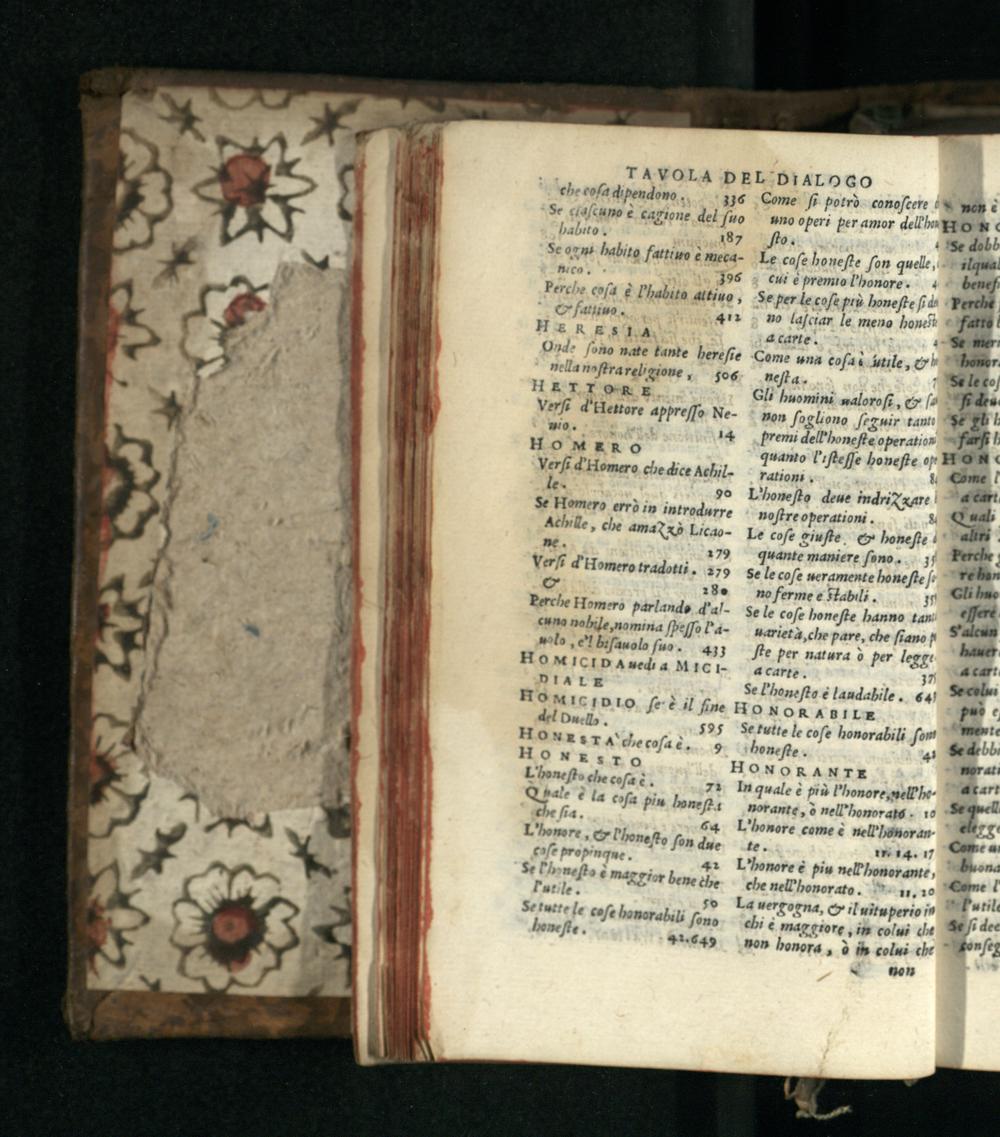 TAVOLA DEL DIALOGO
che cosa dipendono. 336
Se ciascuno è cagione del suo
habito. 187
Se ogni habito fattiuo è meca-
nico. 396
Perche cosa è l'habito attiuo,
& fattiuo. 412
HERESIA
Onde sono nate tante heresie
nella nostra religione, 506
HETTORE
Versi d'Hettore appresso Ne-
uio. 14
HOMERO
Versi d'Homero che dice Achil-
le. 90
Se Homero errò in introdurre
Achille, che amazzò Licao-
ne. 279
Versi d'Homero tradotti. 279
& 280
Perche Homero parlando d'al-
cuno nobile, nomina spesso l'a-
uolo, e'l bisauolo suo. 433
HOMICIDA uedi a MICI-
DIALE
HOMICIDIO se è il fine
del Duello. 595
HONESTA' che cosa è. 9
HONESTO
L'honesto che cosa è. 72
Quale è la cosa piu honesta
che sia. 64
L'honore, & l'honesto son due
cose propinque. 42
Se l'honesto è maggior bene che
l'utile. 50
Se tutte le cose honorabili sono
honeste. 42.649
Come si potrò conoscere
uno operi per amor dell'ho
sto.
Le cose honeste son quelle,
cui è premio l'honore.
Se per le cose più honeste si de
no lasciar le meno honest
a carte.
Come una cosa è utile, & h
nesta.
Gli huomini ualorosi, & sa
non sogliono seguir tanto
premi dell'honeste operation
quanto l'istesse honeste ope
rationi.
L'honesto deue indrizzare
nostre operationi.
Le cose giuste & honeste
quante maniere sono.
Se le cose ueramente honeste so
no ferme e stabili.
Se le cose honeste hanno tant
uarietà, che pare, che siano p
ste per natura ò per legge
a carte.
Se l'honesto è laudabile. 64
HONORABILE
Se tutte le cose honorabili sono
honeste. 42
HONORANTE
In quale è più l'honore, nell'ho-
norante, ò nell'honorato. 10
L'honore come è nell'honoran-
te. 11. 14. 17
L'honore è piu nell'honorante,
che nell'honorato. 11. 20
La uergogna, & il uituperio in
chi è maggiore, in colui che
non honora, ò in colui che
non
non è
HONO
Se dobb
ilqual
benefi
Perche
fatto
Se meri
honora
Se le cos
si deue
Se gli h
farsi h
HONO
Come l'
a cart
Quali
altri
Perche
re hon
Gli huo
essere
S'alcun
hauer
a cart
Se colui
può e
mente
Se debbi
norati
a cart
Se quell
elegge
Come un
buona
Come l'
l'utile
Se si dee
conseg